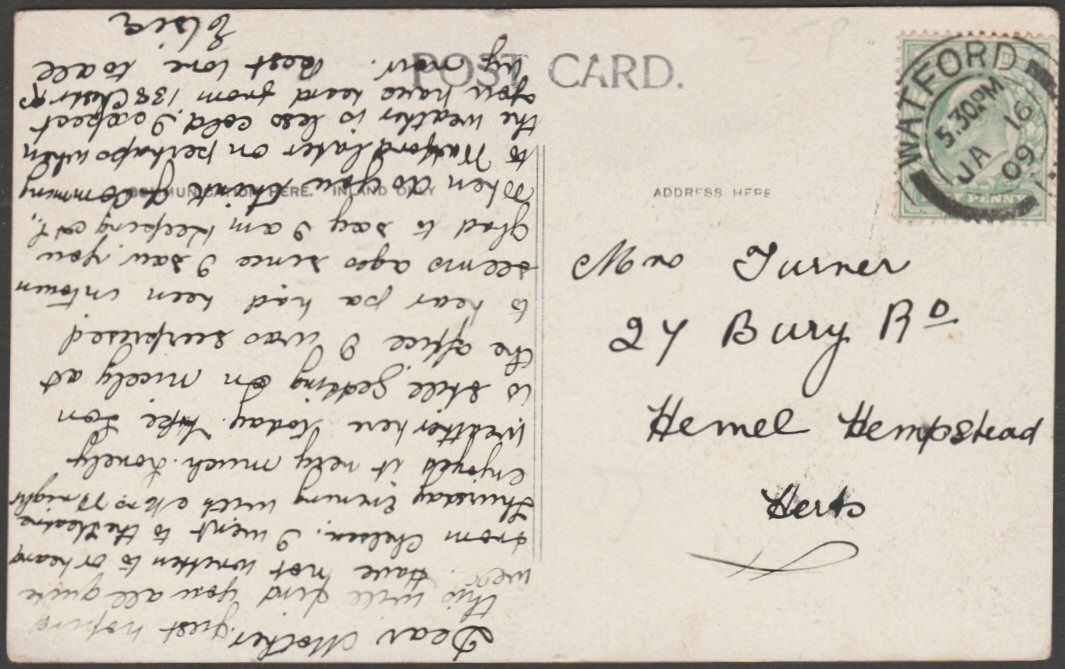 POST CARD.
COMMUNICATION HERE. INLAND ONLY
ADDRESS HERE
WATFORD
5.30PM
JA 16
09
PENNY
Mrs Turner
27 Bury Rd
Hemel Hempstead
Herts
Dear Mother, just hoping
this will find you all quite
well. Have not written to or heard
from Chelsea. I went to the Theatre
Thursday Evening with
enjoyed it very much. Lovely
weather here today. Len
is still getting on nicely at
the office I was surprised
to hear pa had been in town
seems ages since I saw you
glad to say I am keeping
When do you think of comming
to Watford later on perhaps when
the weather is less cold. I expect
you have heard from 138
by now. Best love to all
Elsie